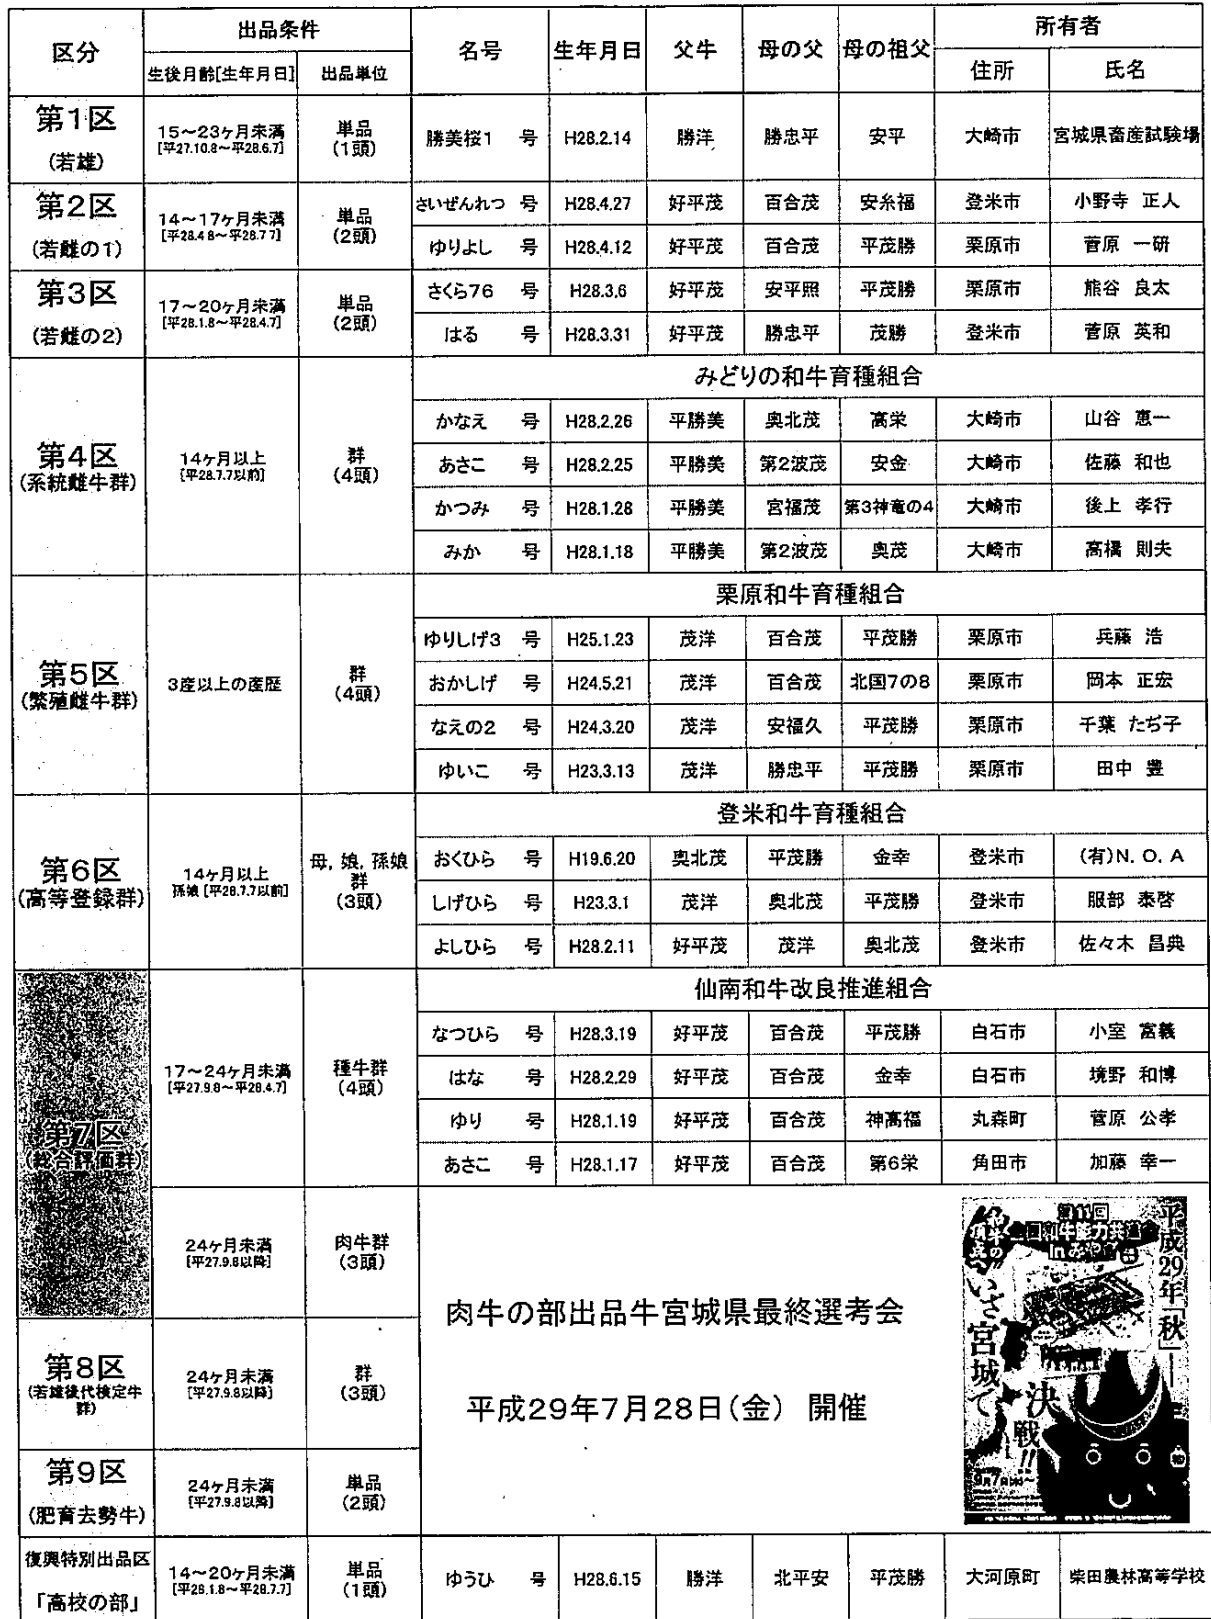 区分 出品条件 名号 生年月日 父牛 母の父 母の祖父 所有者
生後月齢[生年月日] 出品単位 住所 氏名
第1区
(若雄)
15～23ヶ月未満
[平27.10.8～平28.6.7]
単品
(1頭)
勝美桜1 号 H28.2.14 勝洋 勝忠平 安平 大崎市 宮城県畜産試験場
第2区
(若雌の1)
14～17ヶ月未満
[平28.4.8～平28.7.7]
単品
(2頭)
さいぜんれつ 号 H28.4.27 好平茂 百合茂 安糸福 登米市 小野寺 正人
ゆりよし 号 H28.4.12 好平茂 百合茂 平茂勝 栗原市 菅原 一研
第3区
(若雌の2)
17～20ヶ月未満
[平28.1.8～平28.4.7]
単品
(2頭)
さくら76 号 H28.3.6 好平茂 安平照 平茂勝 栗原市 熊谷 良太
はる 号 H28.3.31 好平茂 勝忠平 茂勝 登米市 菅原 英和
第4区
(系統雌牛群)
14ヶ月以上
[平28.7.7以前]
群
(4頭)
みどりの和牛育種組合
かなえ 号 H28.2.26 平勝美 奥北茂 高栄 大崎市 山谷 恵一
あさこ 号 H28.2.25 平勝美 第2波茂 安金 大崎市 佐藤 和也
かつみ 号 H28.1.28 平勝美 宮福茂 第3神竜の4 大崎市 後上 孝行
みか 号 H28.1.18 平勝美 第2波茂 奥茂 大崎市 高橋 則夫
第5区
(繁殖雌牛群)
3産以上の産歴
群
(4頭)
栗原和牛育種組合
ゆりしげ3 号 H25.1.23 茂洋 百合茂 平茂勝 栗原市 兵藤 浩
おかしげ 号 H24.5.21 茂洋 百合茂 北国7の8 栗原市 岡本 正宏
なえの2 号 H24.3.20 茂洋 安福久 平茂勝 栗原市 千葉 たぢ子
ゆいこ 号 H23.3.13 茂洋 勝忠平 平茂勝 栗原市 田中 豊
第6区
(高等登録群)
14ヶ月以上
孫娘 [平28.7.7以前]
母, 娘, 孫娘
群
(3頭)
登米和牛育種組合
おくひら 号 H19.6.20 奥北茂 平茂勝 金幸 登米市 (有)N. O. A
しげひら 号 H23.3.1 茂洋 奥北茂 平茂勝 登米市 服部 泰啓
よしひら 号 H28.2.11 好平茂 茂洋 奥北茂 登米市 佐々木 昌典
第7区
(総合評価群)
17～24ヶ月未満
[平27.9.8～平28.4.7]
種牛群
(4頭)
仙南和牛改良推進組合
なつひら 号 H28.3.19 好平茂 百合茂 平茂勝 白石市 小室 富義
はな 号 H28.2.29 好平茂 百合茂 金幸 白石市 境野 和博
ゆり 号 H28.1.19 好平茂 百合茂 神高福 丸森町 菅原 公孝
あさこ 号 H28.1.17 好平茂 百合茂 第6栄 角田市 加藤 幸一
24ヶ月未満
[平27.9.8以降]
肉牛群
(3頭)
肉牛の部出品牛宮城県最終選考会
平成29年7月28日(金) 開催
第11回
全国和牛能力共進会
inみやぎ
平成29年「秋」
いざ宮城で
決戦!!
第8区
(若雄後代検定牛
群)
24ヶ月未満
[平27.9.8以降]
群
(3頭)
第9区
(肥育去勢牛)
24ヶ月未満
[平27.9.8以降]
単品
(2頭)
復興特別出品区
「高校の部」
14～20ヶ月未満
[平28.1.8～平28.7.7]
単品
(1頭)
ゆうひ 号 H28.6.15 勝洋 北平安 平茂勝 大河原町 柴田農林高等学校